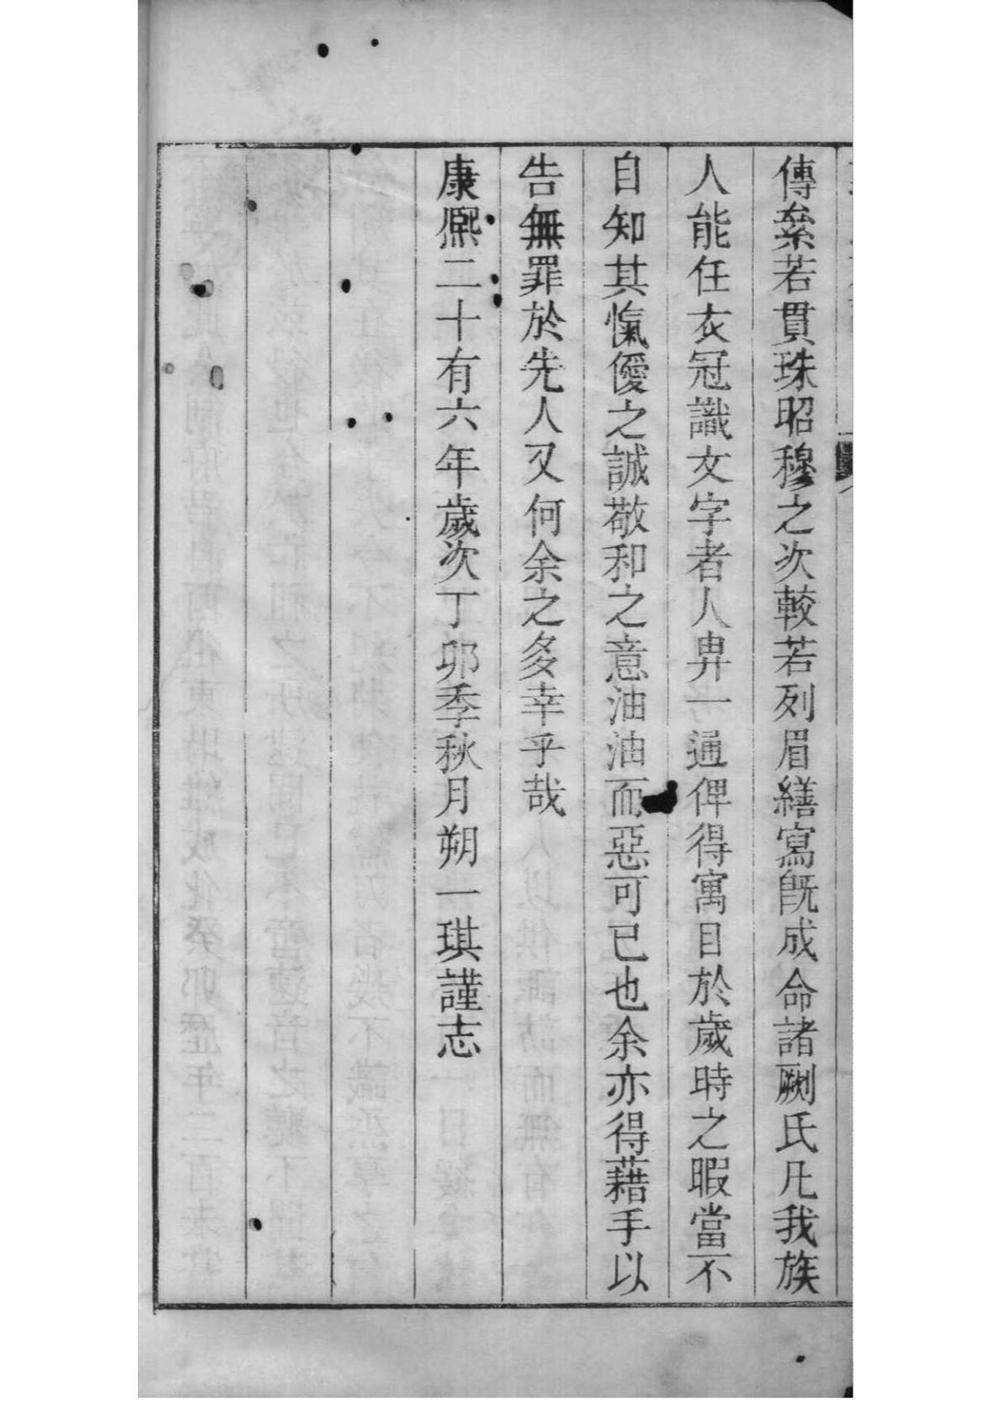 傳絫若貫珠昭穆之次較若列眉繕寫旣成命諸劂氏凡我族
人能任衣冠識文字者人畀一通俾得寓目於歲時之暇當不
自知其愾僾之誠敬和之意油油而惡可已也余亦得藉手以
告無罪於先人又何余之多幸乎哉
康熙二十有六年歲次丁卯季秋月朔一琪謹志